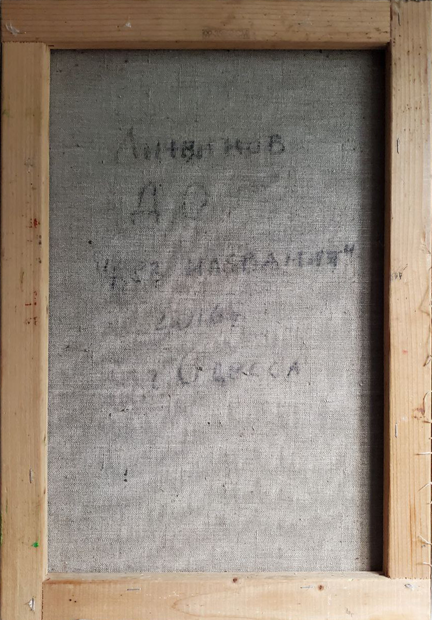 Д. О.
"Без названия"
2016г
г. Одесса